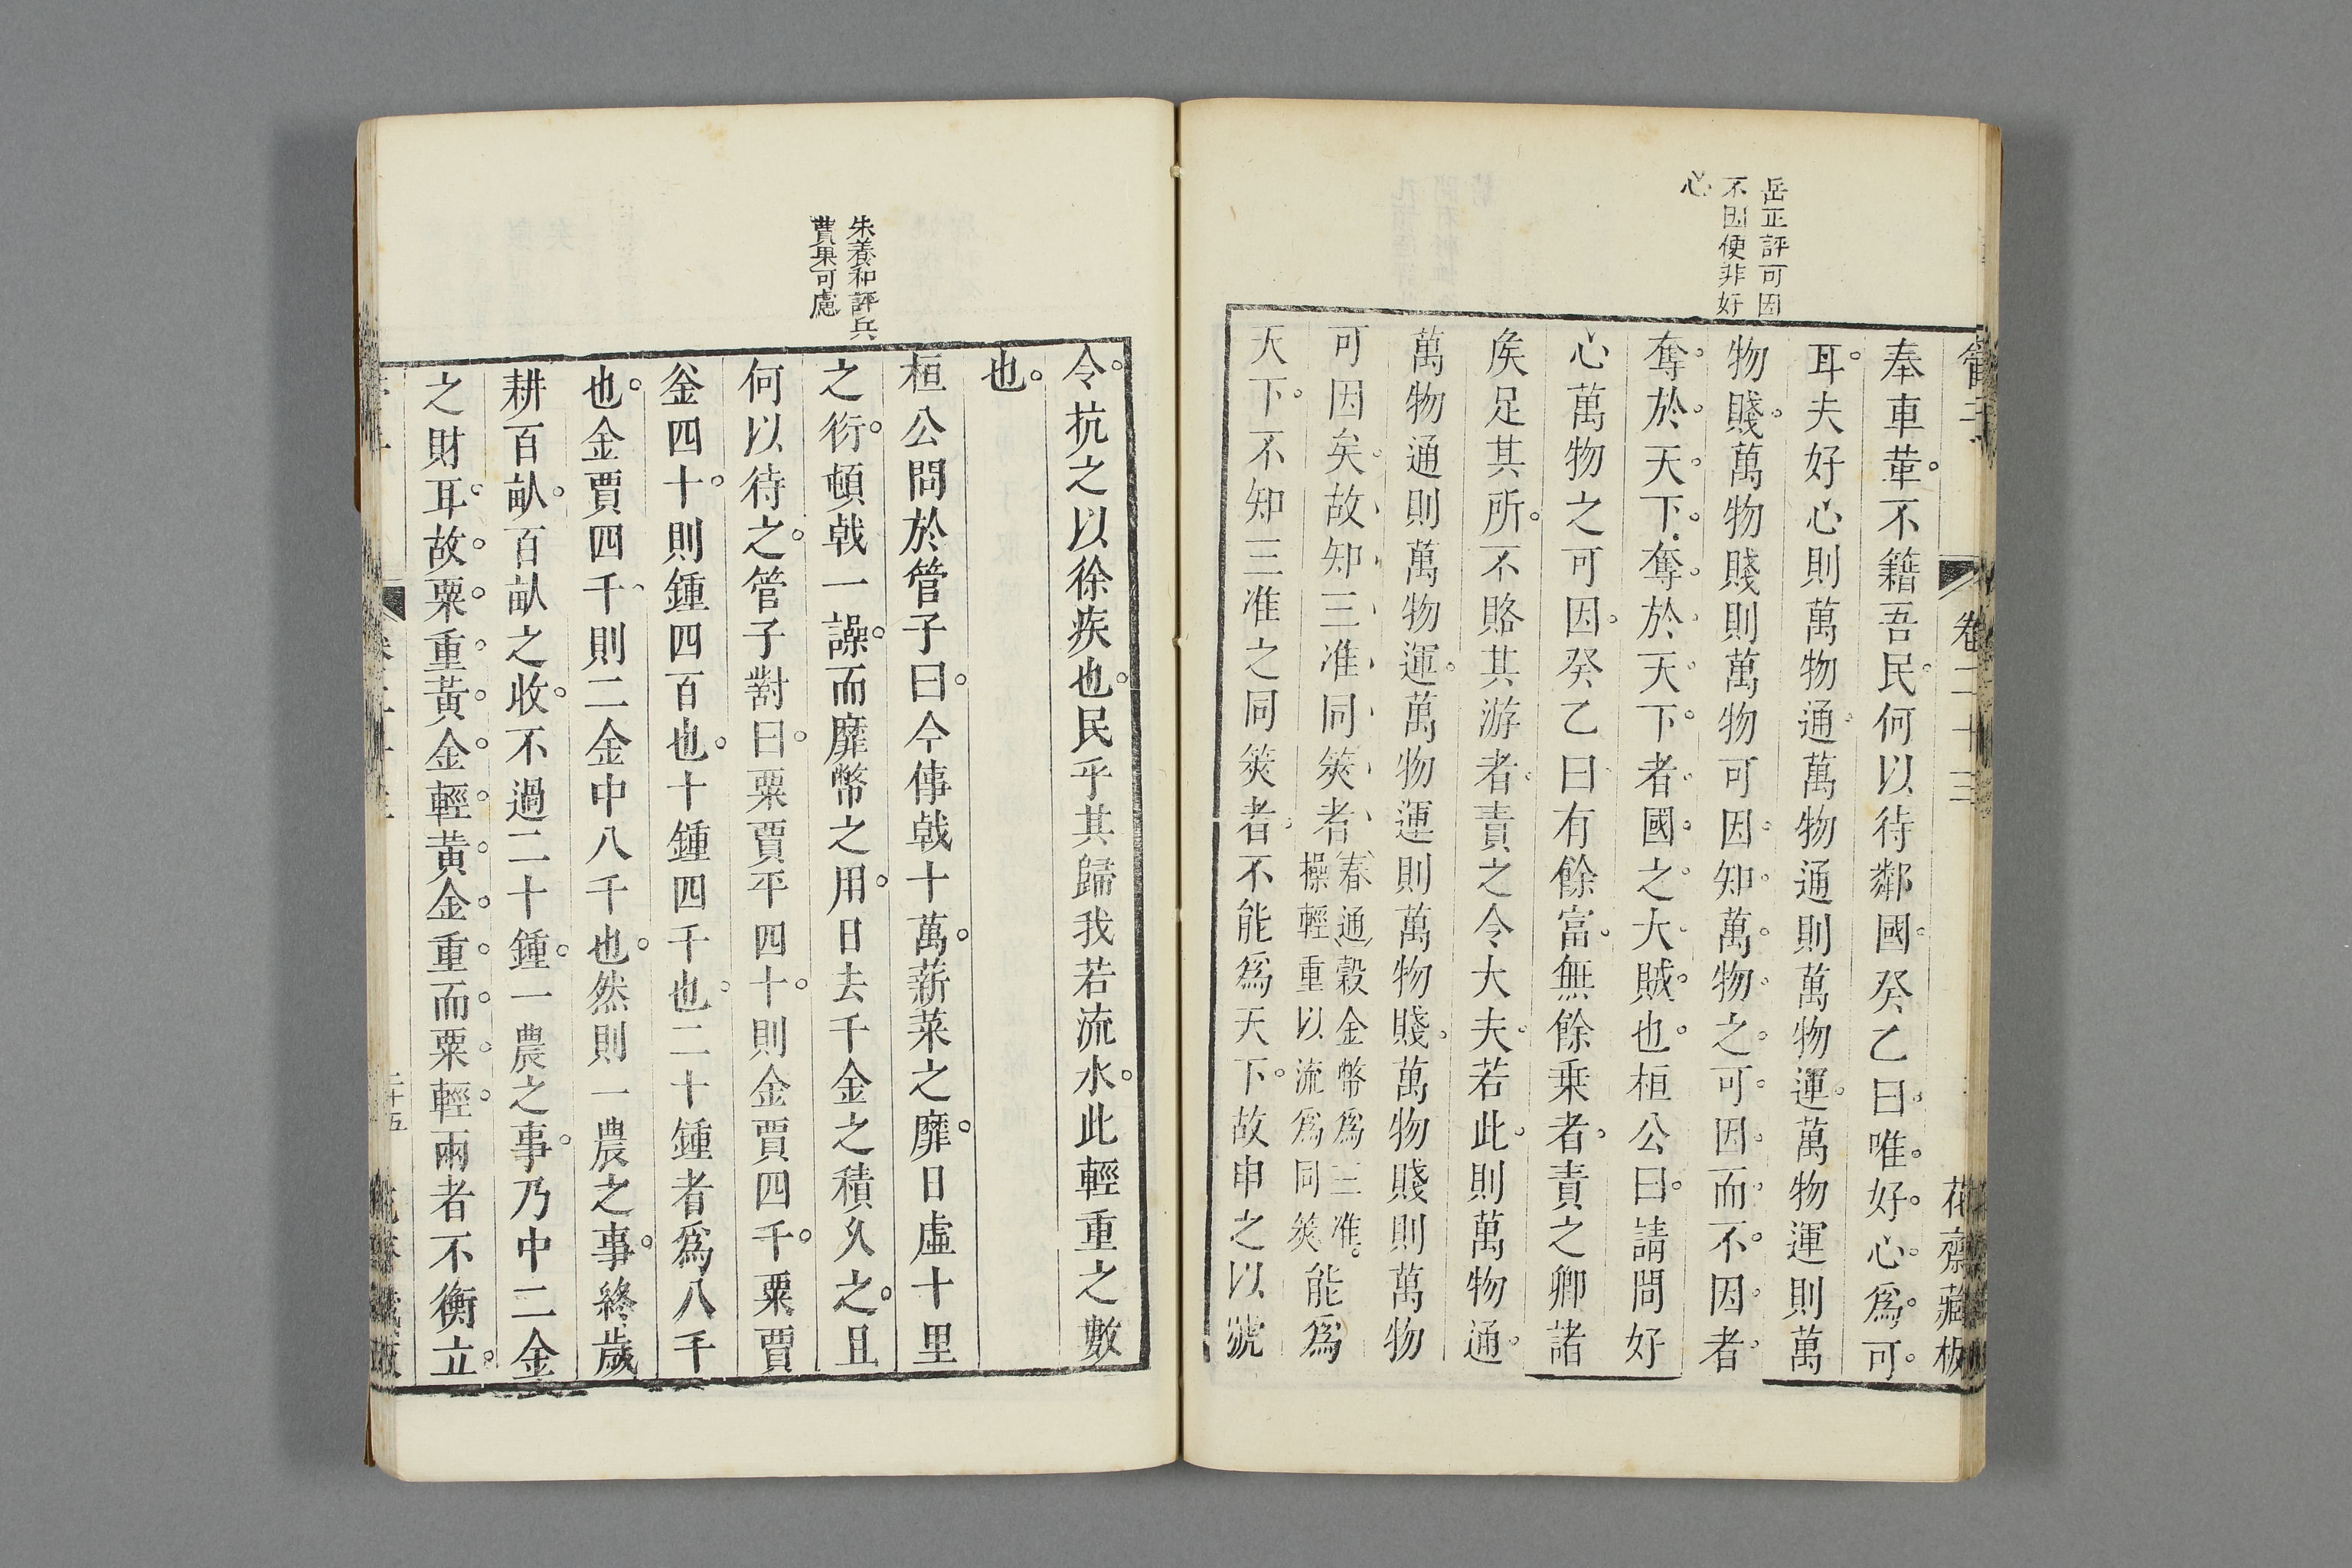 管子
卷二十三
花齋藏板
岳正評可因
不因便非好
心
奉車革不籍吾民何以待鄰國癸乙曰唯好心爲可
耳夫好心則萬物通萬物通則萬物運萬物運則萬
物賤萬物賤則萬物可因知萬物之可因而不因者
奪於天下奪於天下者國之大賊也桓公曰請問好
心萬物之可因癸乙曰有餘富無餘乗者責之卿諸
矦足其所不賂其游者責之令大夫若此則萬物通
萬物通則萬物運萬物運則萬物賤萬物賤則萬物
可因矣故知三准同筴者春通穀金幣爲三准操輕重以流爲同筴能爲
天下不知三准之同筴者不能爲天下故申之以號
令抗之以徐疾也民乎其歸我若流水此輕重之數
也
朱養和評兵
費果可慮
桓公問於管子曰今傳戟十萬薪菜之靡日虛十里
之衍頓戟一譟而靡幣之用日去千金之積久之且
何以待之管子對曰粟賈平四十則金賈四千粟賈
釡四十則鍾四百也十鍾四千也二十鍾者爲八千
也金賈四千則二金中八千也然則一農之事終歲
耕百畝百畝之收不過二十鍾一農之事乃中二金
之財耳故粟重黃金輕黃金重而粟輕兩者不衡立
二十五